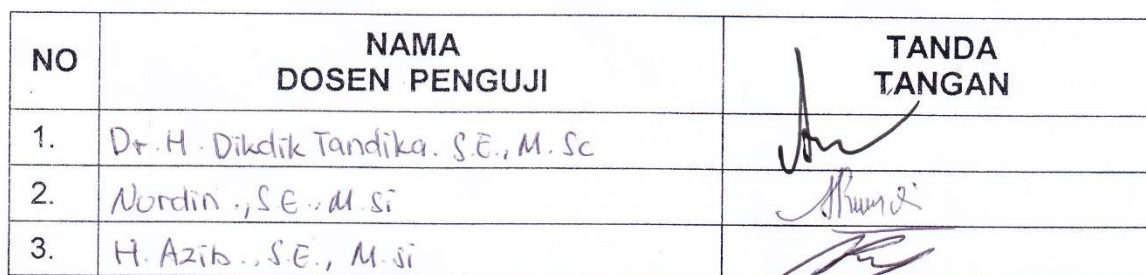 NO NAMA DOSEN PENGUJI TANDA TANGAN
1. Dr. H. Dikdik Tandika. S.E., M. Sc
2. Nurdin ., S.E., M. Si
3. H. Azib., S.E., M. Si